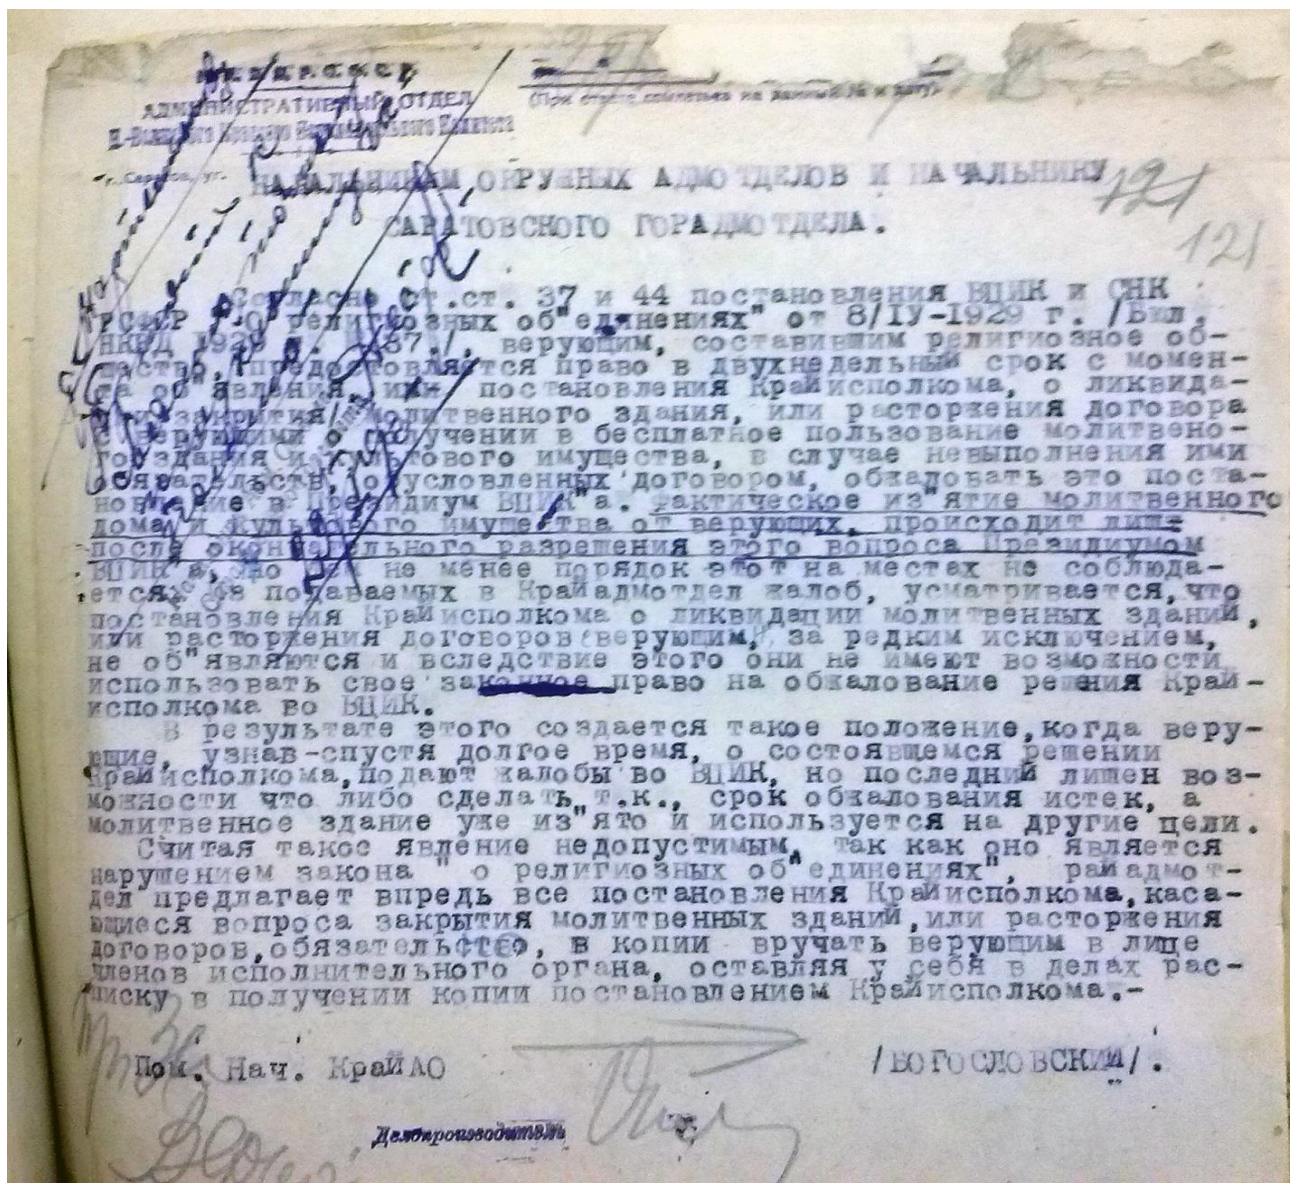 АДМИНИСТРАТИВНЫЙ ОТДЕЛ
(При ответе сошлитесь на данный № и дату).
г. Саратов, уг.
НАЧАЛЬНИКАМ ОКРУЖНЫХ АДМОТДЕЛОВ И НАЧАЛЬНИКУ
121
САРАТОВСКОГО ГОРАДМОТДЕЛА.
121
Согласно ст.ст. 37 и 44 постановления ВЦИК и СНК
РСФСР "О религиозных об"единениях" от 8/IУ-1929 г. /Бюл.
НКВД 1929 г. 37./, верующим, составившим религиозное об-
щество, предоставляется право в двухнедельный срок с момен-
та об"явления им постановления Крайисполкома, о ликвида-
ции /закрытия/ молитвенного здания, или расторжения договора
с верующими о получении в бесплатное пользование молитвено-
го здания и культового имущества, в случае невыполнения ими
обязательств, обусловленных договором, обжаловать это поста-
новление в Президиум ВЦИК"а. Фактическое из"ятие молитвенного
дома и культового имущества от верующих, происходит лишь
после окончательного разрешения этого вопроса Президиумом
ВЦИК"а, но тем не менее порядок этот на местах не соблюда-
ется. Из подаваемых в Крайадмотдел жалоб, усматривается, что
постановления Крайисполкома о ликвидации молитвенных зданий,
или расторжения договоров с верующим, за редким исключением,
не об"являются и вследствие этого они не имеют возможности
использовать свое законное право на обжалование решения Край-
исполкома во ВЦИК.
В результате этого создается такое положение, когда веру-
ющие, узнав-спустя долгое время, о состоявщемся решении
Крайисполкома, подают жалобы во ВЦИК, но последний лишен воз-
можности что либо сделать, т.к., срок обжалования истек, а
молитвенное здание уже из"ято и используется на другие цели.
Считая такое явление недопустимым, так как оно является
нарушением закона " о религиозных об"единениях", райадмот-
дел предлагает впредь все постановления Крайисполкома, каса-
ющиеся вопроса закрытия молитвенных зданий, или расторжения
договоров, обязательство, в копии вручать верующим в лице
членов исполнительного органа, оставляя у себя в делах рас-
писку в получении копии постановлением Крайисполкома.-
Пом. Нач. КрайАО /БОГОСЛОВСКИЙ/.
Делопроизводитель